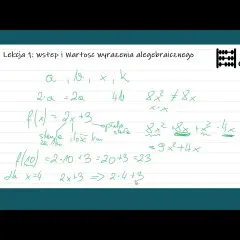 Lekcja 1: Wstęp i Wartość wyrażenia alegebraicznego
a , b , x , k
2·a = 2a 4b 8x² ≠ 8x
x·x
f(x) = 2x + 3
8x² + 8x + x² - 4x
= 9x² + 4x
f(10) = 2·10 + 3 = 20 + 3 = 23
dla x=4 2x+3 ⇒ 2·4+3